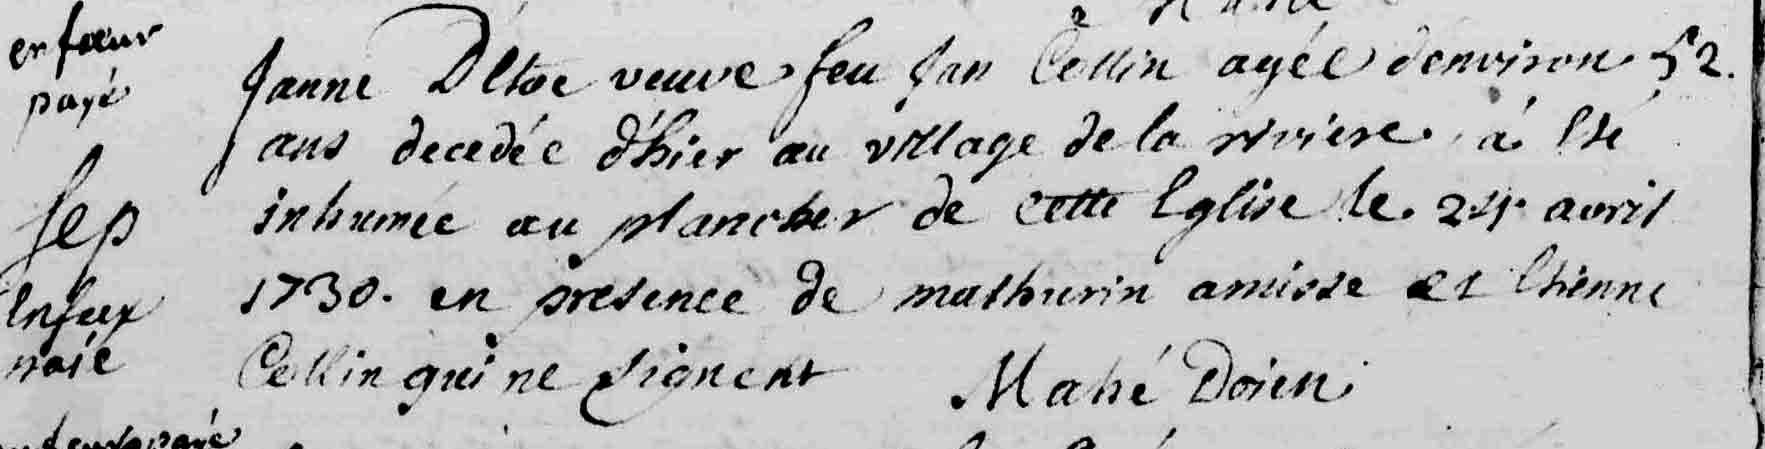 en feeur
payé
Janne Deltoc veuve feu Jan Collin agée denviron 52.
ans decedée d'hier au village de la riviere à Eté
Sep
inhumée au plancher de cette Eglise le 24 avril
Enfeux
1730. en presence de mathurin amisse et Etienne
paié
Collin qui ne signent Mahé Doien